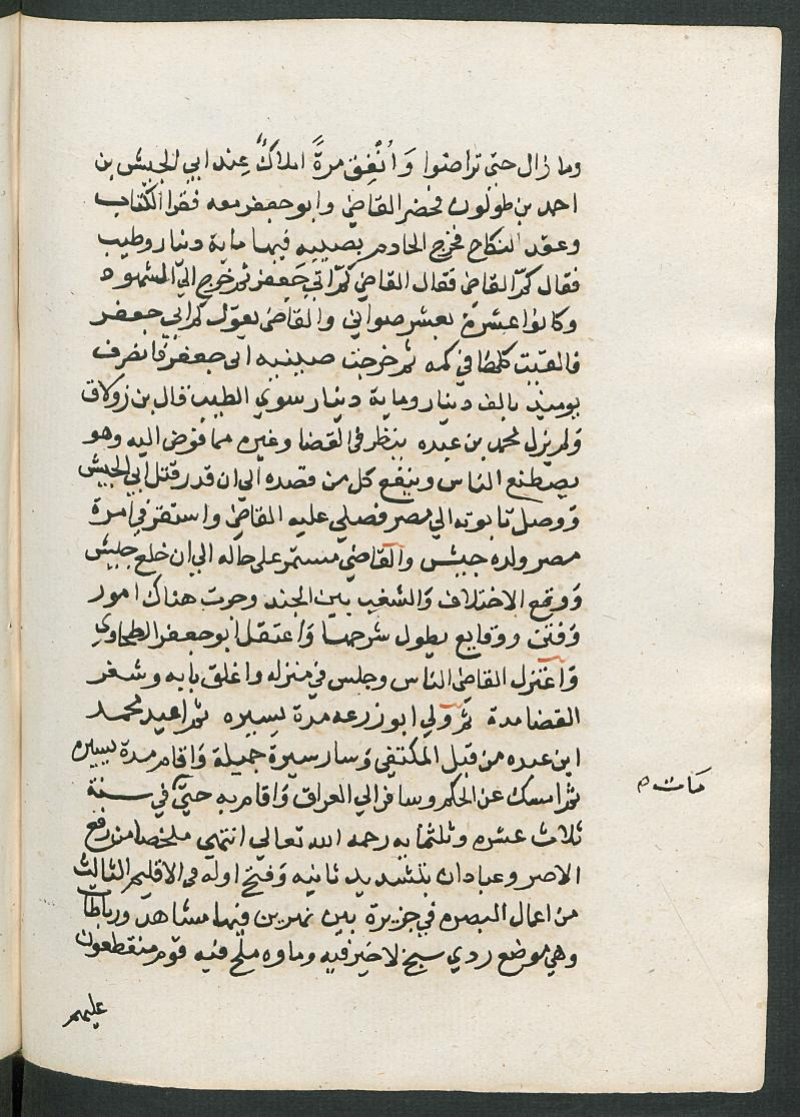 وما زال حتى تراضوا وَاتُّفِق مرةً املاكٌ عِند ابي الجيش بن
احمد بن طولون فحضر القاضي وابو جعفر معه فقرا الكتاب
وعقد النكاح فخرج الخادم بصينيه فيها ماية دينار وطيب
فقال كمّ القاضي فقال القاضي كمّ ابي جَعفر ثم خرج الي الشهود
وكانوا عشرة بعشر صواني والقاضي يقول كم ابي جعفر
فالقيت كلها في كمه ثم خرجت صينيه ابي جعفر فانصرف
يوميذ بالف دينار وماية دينار سوي الطيب قال بن زولاق
وَلم يزل محمد بن عبده ينظر في القضا وغيره مما فوض اليه وهو
يصطنع الناس وينفع كل من قصده الي ان قدر قتل ابي الجيش
وَوصل تابوته الي مصر فصلي عليه القاضي واستقر في امرة
مصر ولده جيش والقاضي مستمر علي حاله الي ان خلع جيش
وَوقع الاختلاف وَالشغب بين الجند وجرت هناك امور
وَفتن ووقايع يطول شرحها وَاعتقل ابو جعفر الطحاوي
وَاعتزل القاضي الناس وجلس في منزله واغلق بابه وشغر
القضا مدة ثم ولي ابو زرعه مدة يسيره ثم اعيد محمد
ابن عبده من قبل المكتفي وَسار سيرة جميلة وَاقام مدة يسيره
ثم امسك عن الحكم وسافر الي العراق وَاقام به حتيّ في سنة
مَات ه
ثلاث عشره وثلثمايه رحمه الله تعالي انتهي ملخصا من رفع
الاصر وعبادان بتشديد ثانيه وَفتح اوله في الاقليم الثالث
من اعمال البصره في جزيرة بين نهرين فيها مشاهد ورباطات
وهي موضع ردي سبخ لا خير فيه وماوه ملح فيه قوم منقطعون
عليهم